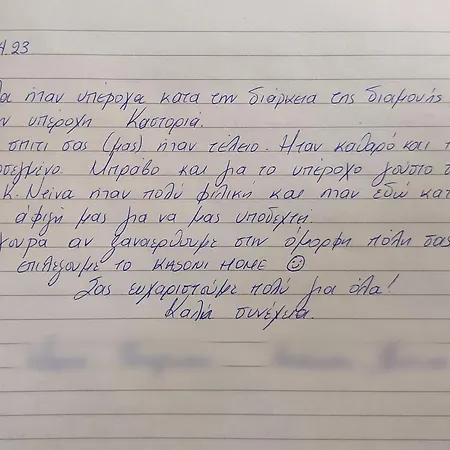 4 23
λα ήταν υπέροχα κατα την διάρκεια της διαμονής
ν υπέροχη Καστοριά.
σπίτι σας (μας) ήταν τέλειο. Ήταν καθαρό και π
σεγμένο. Μπράβο και για το υπέροχο γούστο σ
κ. Νείνα ήταν πολύ φιλική και ήταν εδώ κατ
άφιξή μας για να μας υποδεχτεί.
γουρα αν ξαναέρθουμε στην όμορφη πόλη σας
επιλέξουμε το KASONI HOME ☺
Σας ευχαριστούμε πολύ για όλα!
Καλή συνέχεια.